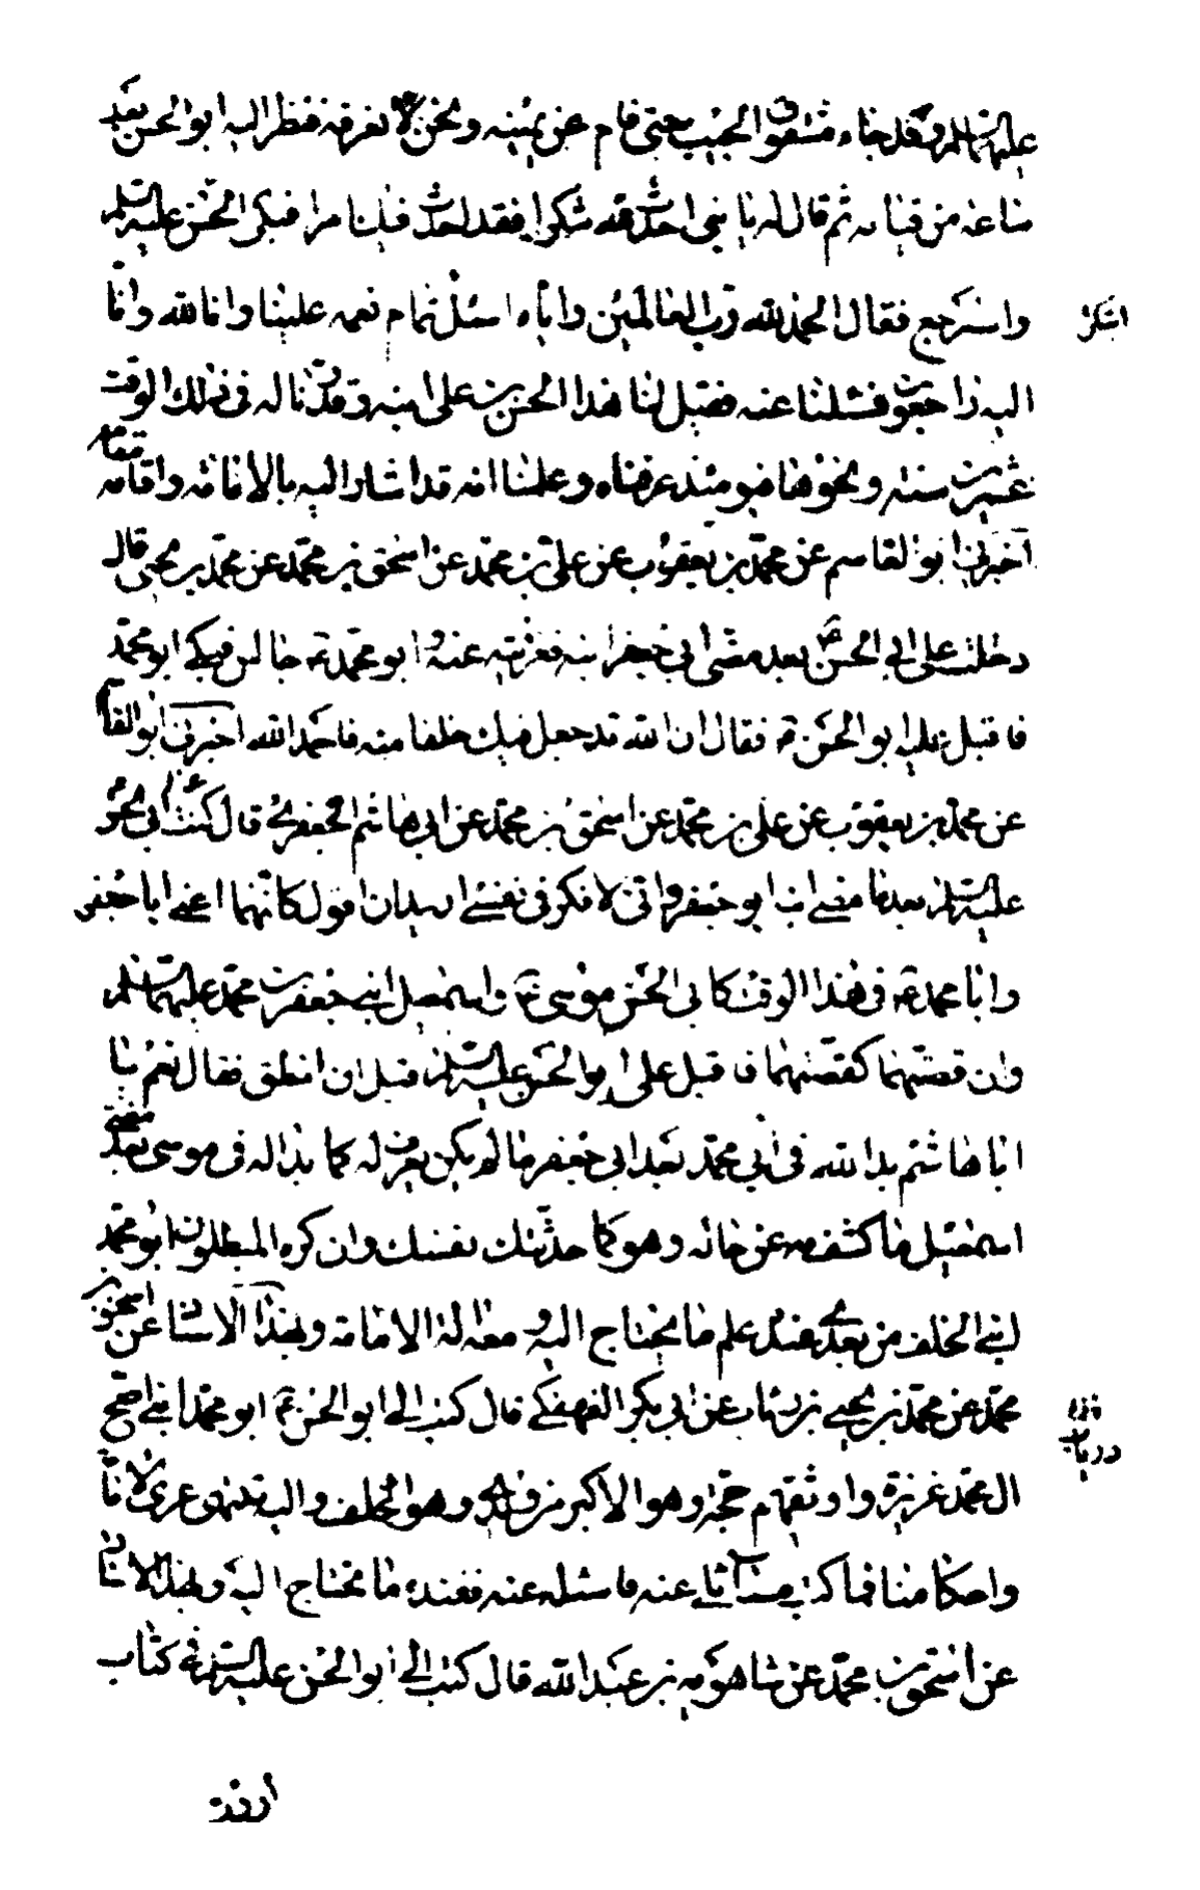 عليهما السلام وقد جاء مشقوق الجيب حتى قام عن يمينه ونحن لا نعرفه فنظر اليه ابو الحسن بعد
ساعة من قيامه ثم قال له يا بني احدث لله شكرا فقد احدث فيك امرا فبكى الحسن عليه السلم
واسترجع فقال الحمد لله رب العالمين واياه اسئل تمام نعمه علينا وانا لله وانا
اشكر
اليه راجعون فسئلنا عنه فقيل لنا هذا الحسن بن على ابنه وقدرنا له في ذلك الوقت
عشرين سنة ونحوها فيومئذ عرفناه وعلمنا انه قد اشار اليه بالامامة واقامه مقامه
اخبرني ابو القاسم عن محمد بن يعقوب عن علي بن محمد عن اسحق بن محمد عن محمد بن يحيى قال
دخلت على ابي الحسن ع بعد مضى ابي جعفر ابنه فعزيته عنه وابو محمد ع جالس فبكى ابو محمد
فاقبل عليه ابو الحسن ع فقال ان الله قد جعل فيك خلفا منه فاحمد الله اخبرني ابو القا
عن محمد بن يعقوب عن علي بن محمد عن اسحق بن محمد عن ابي هاشم الجعفري قال كنت عند ابي الحسن
عليه السلم بعد ما مضى ابنه ابو جعفر واني لافكر في نفسي اريد ان اقول كانهما اعني ابا جعفر
وابا محمد ع في هذا الوقت كابي الحسن موسى ع واسمعيل ابني جعفر بن محمد عليهما السلم
وان قصتهما كقصتهما فاقبل على ابو الحسن عليه السلم قبل ان انطق فقال نعم يا
ابا هاشم بدا لله في ابي محمد بعد ابي جعفر ما لم يكن يعرف له كما بدا له في موسى بعد مضى
اسمعيل ما كشف به عن حاله وهو كما حدثتك نفسك وان كره المبطلون ابو محمد
ابني الخلف من بعدي عنده علم ما يحتاج اليه ومعه الة الامامة وبهذا الاسناد عن اسحق بن
محمد عن محمد بن يحيى بن رئاب عن ابي بكر الفهفكي قال كتب الى ابو الحسن ع ابو محمد ابني اصح
ال محمد غريزة واوثقهم حجة وهو الاكبر من ولدي وهو الخلف واليه تنتهى عرى الامامة
واحكامنا فما كنت سائلي عنه فاسئله عنه فعنده ما تحتاج اليه وبهذا الاسناد
عن اسحق بن محمد عن شاهويه بن عبد الله قال كتب الى ابو الحسن عليه السلم في كتاب
اردت